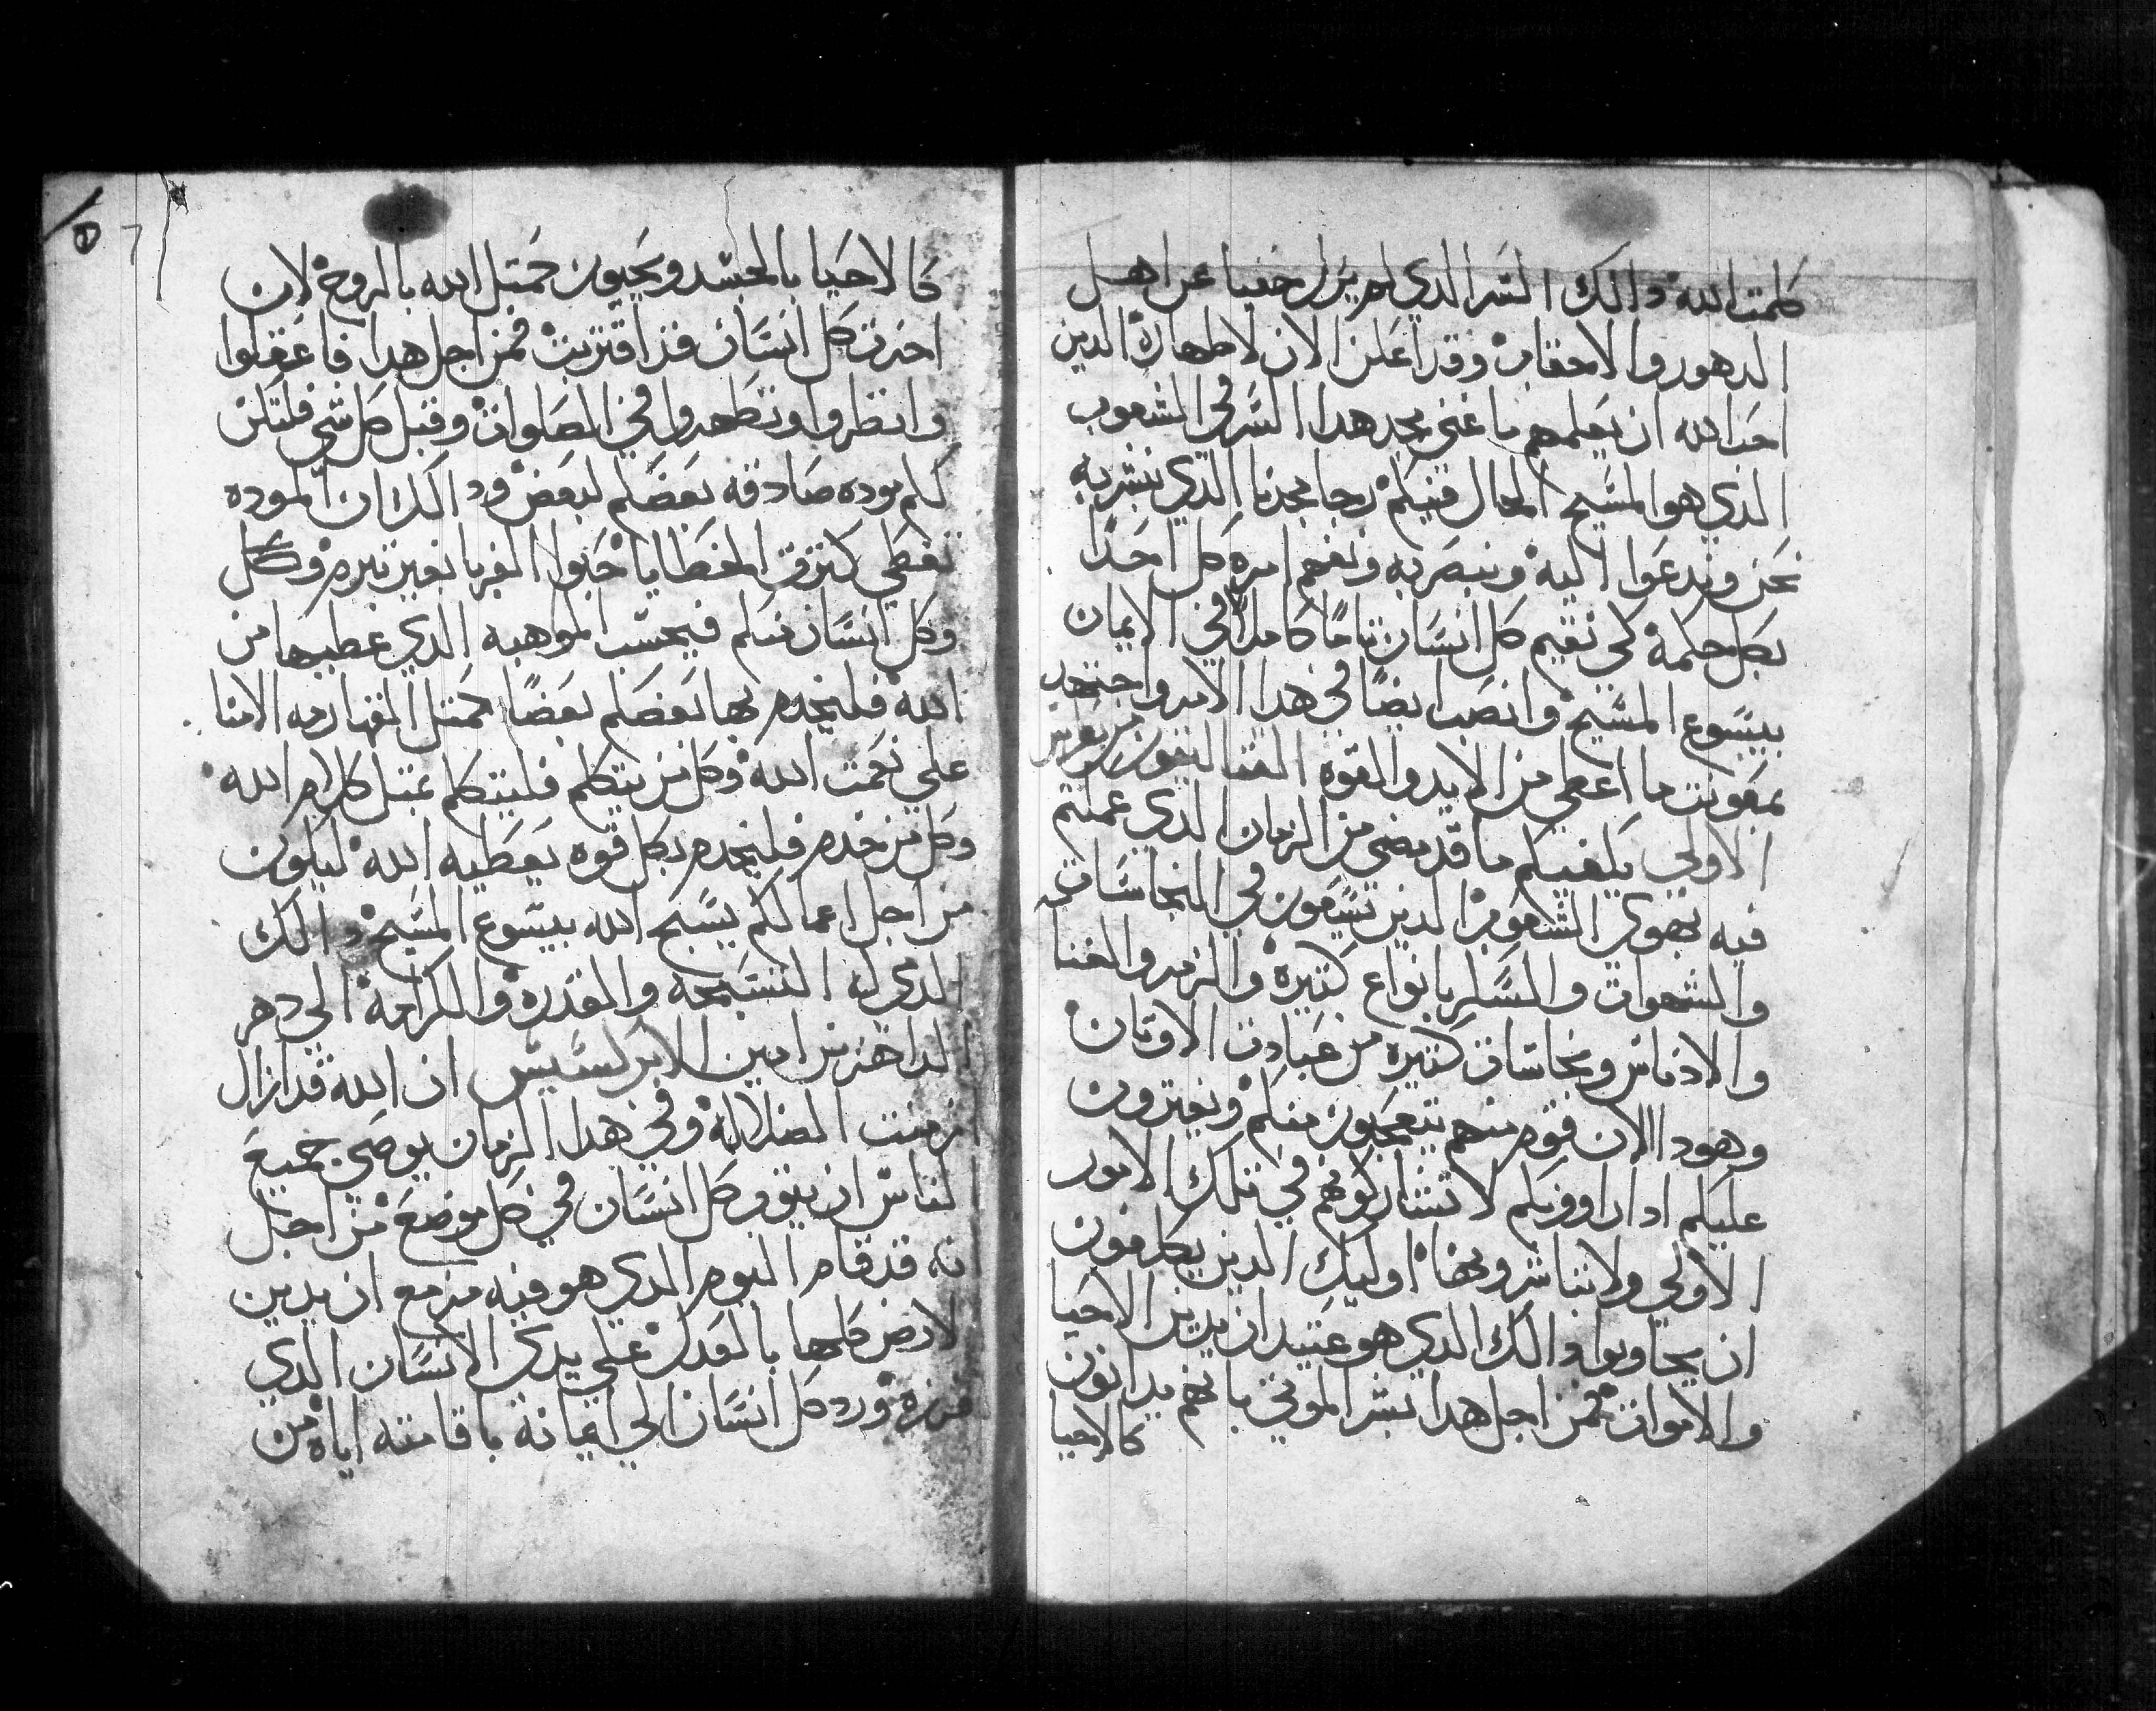 كلمت الله ذالك السر الدي لم يزل مخفيا عن اهل
الدهور والاحقاب وقد اعلن الان لاطهاره الدين
احب الله ان يعلمهم ما غني مجد هدا السر في الشعوب
الدي هو المسيح الحال فيكم رجا مجدنا الدي نبشر به
نحن وندعوا اليه ونبصر به ونفهم امره كل احدا
بكل حكمة لكي نقيم كل انسان تاما كاملا في الايمان
بيسوع المسيح وانصب ايضا في هدا الامر واجتهد
بمعونت ما اعطي من الايد والقوه القتاليقون من بطرس
الاولي يكفيكم ما قد مضي من الزمان الدي عملتم
فيه بهوي الشعوب الدين يسعون في النجاسات
والشهوات والسكر بانواع كتيره والزمر والغنا
والادناس ونجاسات كتيره من عبادت الاوتان
وهود الان قوم منهم يتعجبون منكم ويفترون
عليكم ادا راووكم لا تشاركوهم في تلك الامور
الاولي ولا تناشروها اوليك الدين يكلفون
ان يجاوبوا دالك الدي هو عتيد ان يدين الاحيا
والاموات فمن اجل هدا بشر الموتي بانهم يدانون
كالاحيا
كالاحيا بالجسد ويحيون كمتل الله بالروح لان
اخرت كل انسان قد اقتربت فمن اجل هدا فاعقلوا
وانظروا وتطهروا في الصلوات وقبل كل شي فلتكن
لكم موده صادقه بعضكم لبعض ودالك ان الموده
تغطي كترت الخطايا احبوا الغربا بغير تبرم وكل
وكل انسان منكم فبحسب الموهبه الدي عطيها من
الله فليخدم بها بعضكم بعضا كمتل القهارمه الامنا
علي نعمت الله وكل من يتكلم فليتكلم بمتل كلام الله
وكل من خدم فليخدم بكل قوه يعطيه الله ليكون
من اجل اعمالكم يسبح الله بيسوع المسيح دالك
الدي له التسبحه والقدره والكرامة الي دهر
الداهرين امين الابركسيس ان الله قد ازال
ازمنت الضلاله وفي هدا الزمان يوصي جميع
لناس ان يتوب كل انسان في كل موضع من اجل
نه قد قام اليوم الدي هو فيه مزمع ان يدين
لارض كلها بالعدل علي يدي الانسان الدي
فرزه ورد كل انسان الي ايمانه باقامته اياه من